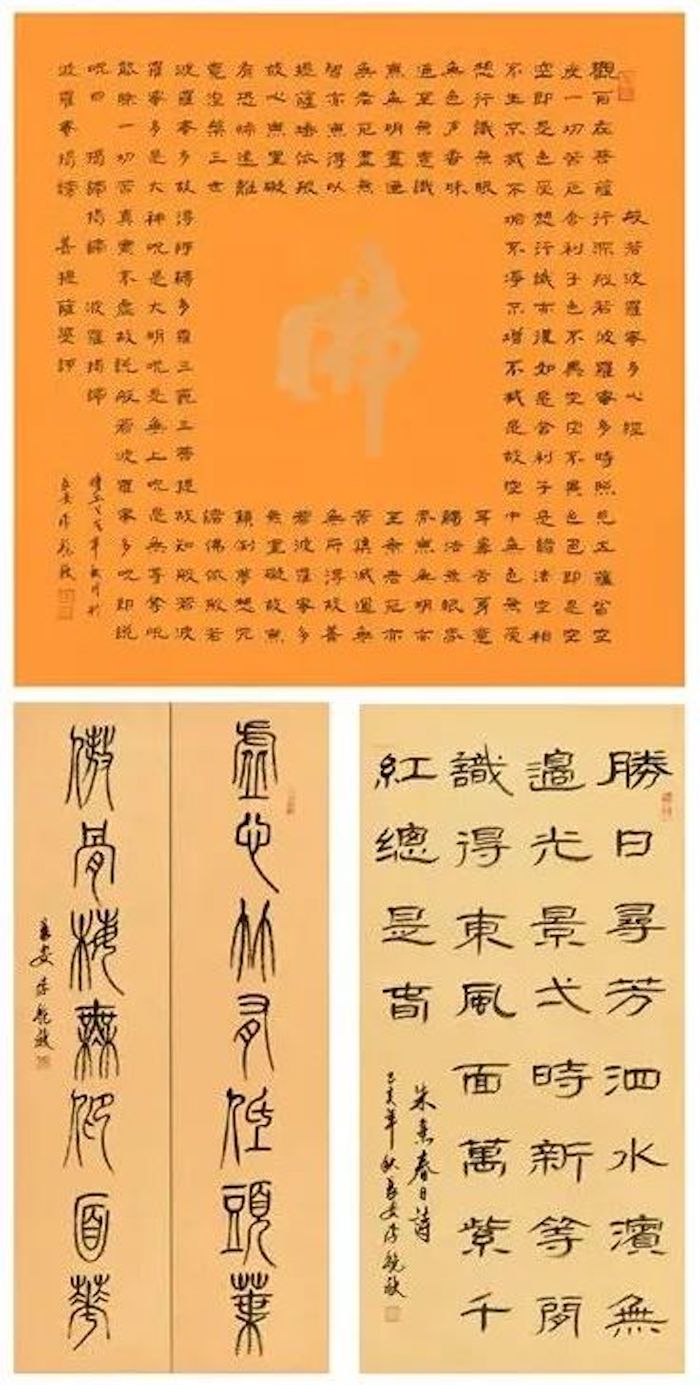 般若波羅蜜多心經
觀自在菩薩行深般若波羅蜜多時照見五蘊皆空
度一切苦厄舍利子色不異空空不異色色即是空
空即是色受想行識亦復如是舍利子是諸法空相
不生不滅不垢不淨不增不減是故空中無色無受
想行識無眼耳鼻舌身意
無色声香味觸法無眼界
迺至無意識界無無明亦
無無明盡迺至無老死亦
無老死盡無苦集滅道無
智亦無得以無所得故菩
提薩埵依般若波羅蜜多
故心無罣礙無罣礙故無
有恐怖遠離顛倒夢想究
竟涅槃三世諸佛依般若
波羅蜜多故得阿耨多羅三藐三菩提故知般若波
羅蜜多是大神咒是大明咒是無上咒是無等等咒
能除一切苦真實不虛故說般若波羅蜜多咒即說
咒曰 揭諦揭諦 波羅揭諦
波羅僧揭諦 菩提薩婆訶
佛
己亥年秋月於
長安李
虛心竹有低頭葉
傲骨梅無仰面花
長安李
勝日尋芳泗水濱無
邊光景弌時新等閒
識得東風面萬紫千
紅總是春
朱熹春日詩
己亥年秋長安李